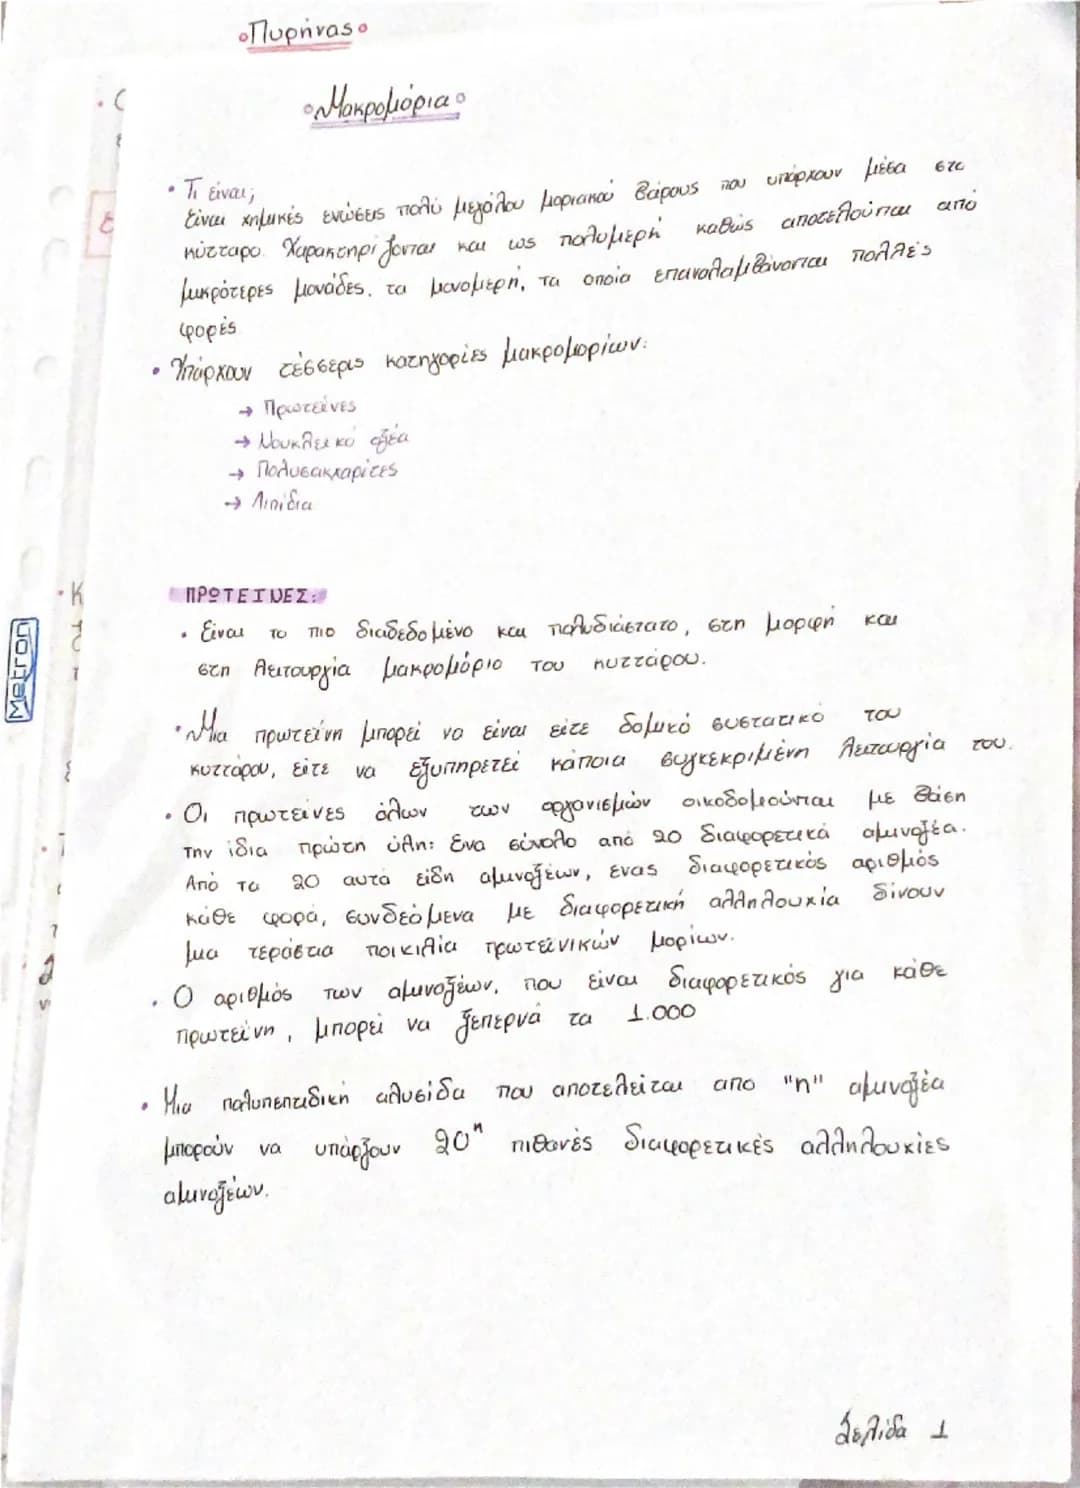 Πυρήνας
Μακρομόρια
• Τι είναι;
Είναι χημικές ενώσεις πολύ μεγάλου μοριακού βάρους που υπάρχουν μέσα στο
κύτταρο. Χαρακτηρίζονται και ως πολυμερή καθώς αποτελούνται από
μικρότερες μονάδες, τα μονομερή, τα οποία επαναλαμβάνονται πολλές
φορές
• Υπάρχουν τέσσερις κατηγορίες μακρομορίων:
→ Πρωτεΐνες
→ Νουκλεικό οξέα
→ Πολυσακχαρίτες
→ Λιπίδια
ΠΡΩΤΕΙΝΕΣ:
• Είναι το πιο διαδεδομένο και πολυδιάστατο, στη μορφή και
στη λειτουργία μακρομόριο του κυττάρου.
• Μια πρωτεΐνη μπορεί να είναι είτε δομικό συστατικό του
κυττάρου, είτε να εξυπηρετεί κάποια συγκεκριμένη λειτουργία του.
• Οι πρωτεΐνες όλων των οργανισμών οικοδομούνται με βάση
την ίδια πρώτη ύλη: Ένα σύνολο από 20 διαφορετικά αμινοξέα.
Από τα 20 αυτά είδη αμινοξέων, ένας διαφορετικός αριθμός
κάθε φορά, συνδεόμενα με διαφορετική αλληλουχία δίνουν
μια τεράστια ποικιλία πρωτεϊνικών μορίων.
• Ο αριθμός των αμινοξέων, που είναι διαφορετικός για κάθε
πρωτεΐνη, μπορεί να ξεπερνά τα 1.000
• Μια πολυπεπτιδική αλυσίδα που αποτελείται από "n" αμινοξέα
μπορούν να υπάρξουν 20ⁿ πιθανές διαφορετικές αλληλουχίες
αμινοξέων.
Σελίδα 1
Metron